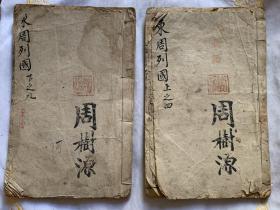 東周列國下之九
周樹源
東周列國上之四
周樹源